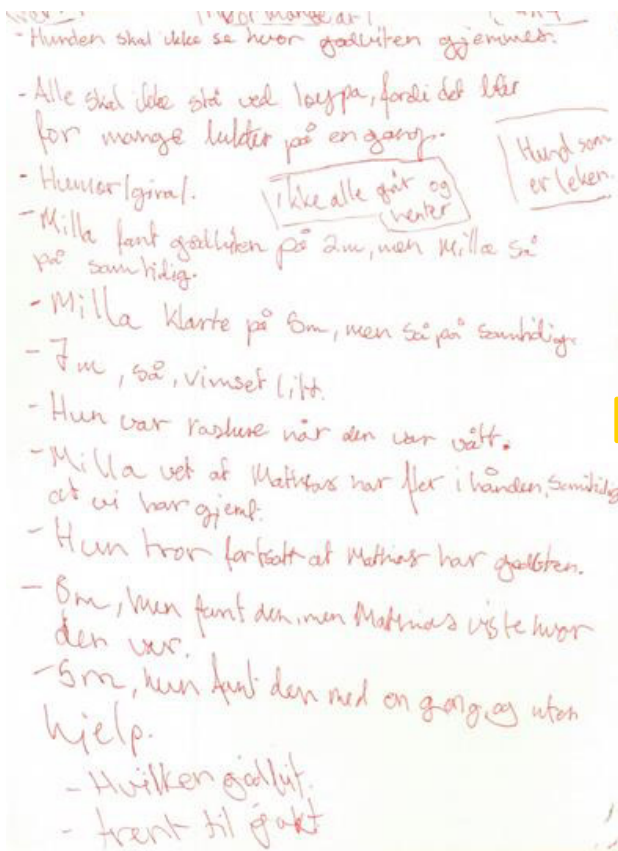 - Hunden skal ikke se hvor godbiten gjemmes.
- Alle skal ikke stå ved løypa, fordi det blir
for mange lukter på en gang.
Hund som
er leken.
- Humør/giral.
ikke alle går og
henter
- Milla fant godbiten på 2m, men Milla så
på samtidig.
- Milla klarte på 5m, men så på samtidig.
- 7m, så, vimset litt.
- Hun var raskere når den var vått.
- Milla vet at Mathias har fler i hånden, samtidig
at vi har gjemt.
- Hun tror fortsatt at Mathias har godbiten.
- 8m, hun fant den, men Mathias viste hvor
den var.
- 5m, hun fant den med en gang, og uten
hjelp.
- Hvilken godbit.
- trent til jakt